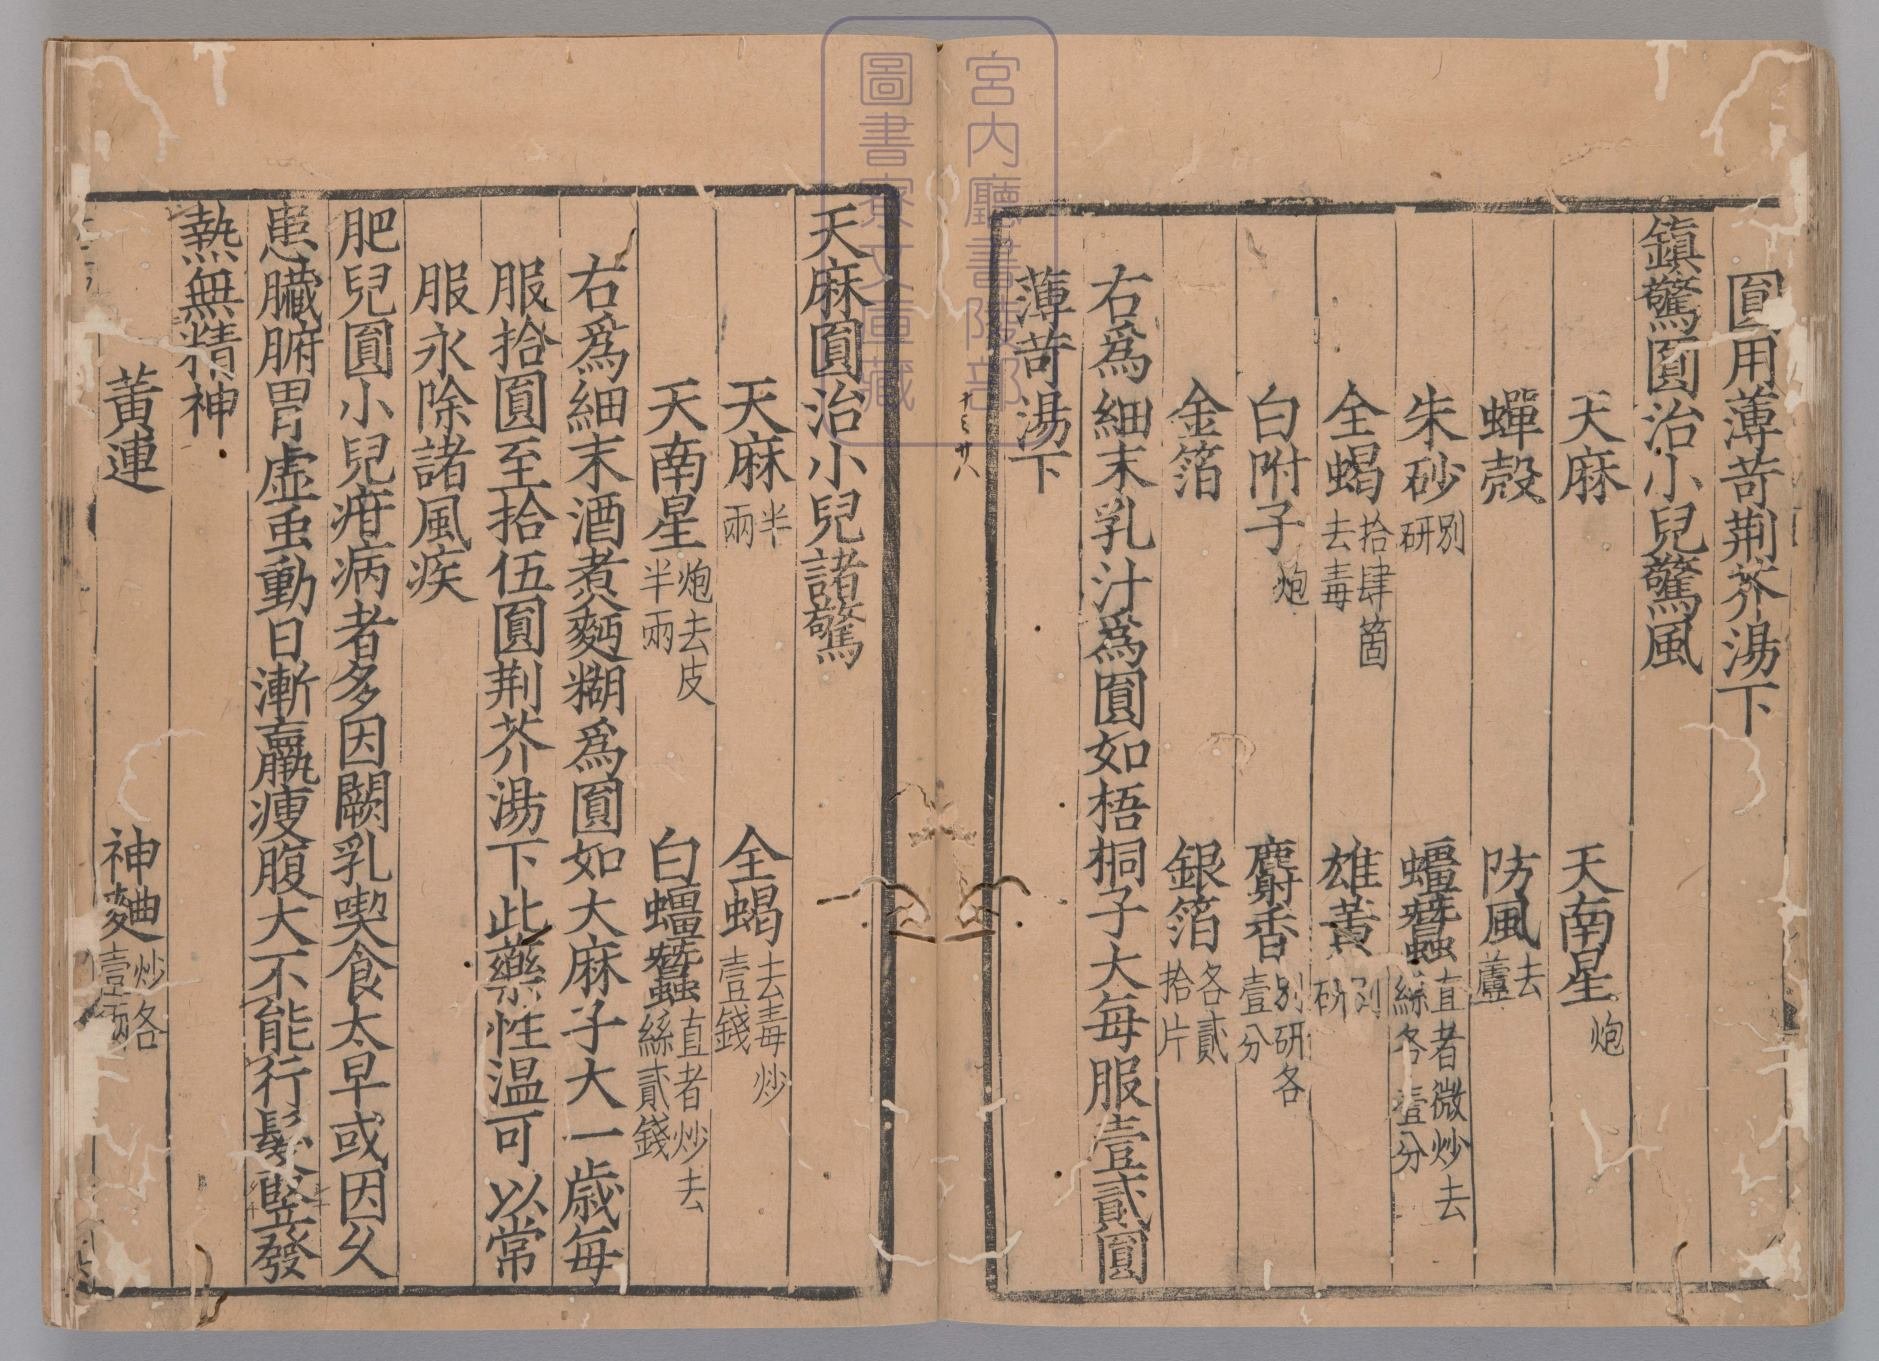 圓用薄苛荆芥湯下
鎮驚圓治小兒驚風
天麻　天南星炮
蟬殼　防風去蘆
朱砂別研　蠶直者微炒去絲各壹分
全蝎拾肆箇去毒　雄黃別研
白附子炮　麝香別研各壹分
金箔　銀箔各貳拾片
右爲細末乳汁爲圓如梧桐子大每服壹貳圓
薄苛湯下
十之廿八
天麻圓治小兒諸驚
天麻半兩　全蝎去毒炒壹錢
天南星炮去皮半兩　白蠶直者炒去絲貳錢
右爲細末酒煮麪糊爲圓如大麻子大一歲每
服拾圓至拾伍圓荆芥湯下此藥性温可以常
服永除諸風疾
肥兒圓小兒疳病者多因闕乳喫食太早或因久
患臟腑胃虛虫動日漸羸瘦腹大不能行髮竪發
熱無精神
黃連　神麯炒各壹兩
宮内廳書陵部
圖書寮文庫藏